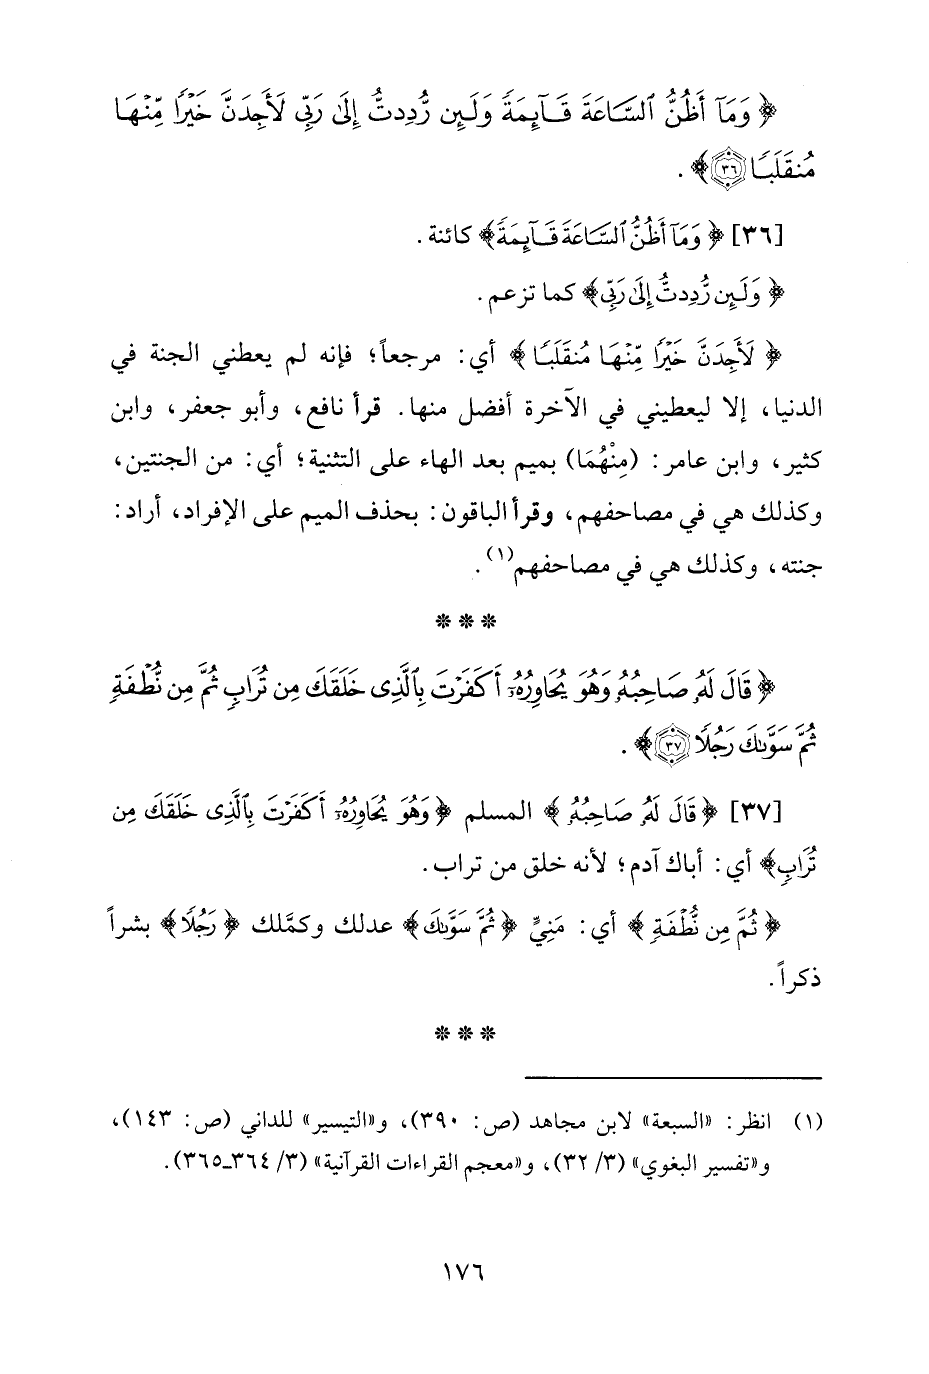 ﴿ وَمَآ أَظُنُّ ٱلسَّاعَةَ قَآئِمَةً وَلَئِن رُّدِدتُّ إِلَىٰ رَبِّى لَأَجِدَنَّ خَيْرًا مِّنْهَا
مُنقَلَبًا ٣٦ ﴾ .
[٣٦] ﴿ وَمَآ أَظُنُّ ٱلسَّاعَةَ قَآئِمَةً ﴾ كائنة .
﴿ وَلَئِن رُّدِدتُّ إِلَىٰ رَبِّى ﴾ كما تزعم .
﴿ لَأَجِدَنَّ خَيْرًا مِّنْهَا مُنقَلَبًا ﴾ أي : مرجعاً؛ فإنه لم يعطني الجنة في
الدنيا، إلا ليعطيني في الآخرة أفضل منها. قرأ نافع، وأبو جعفر، وابن
كثير، وابن عامر : (مِنْهُمَا) بميم بعد الهاء على التثنية؛ أي : من الجنتين،
وكذلك هي في مصاحفهم، وقرأ الباقون : بحذف الميم على الإفراد، أراد :
جنته، وكذلك هي في مصاحفهم(١).
* * *
﴿ قَالَ لَهُۥ صَاحِبُهُۥ وَهُوَ يُحَاوِرُهُۥٓ أَكَفَرْتَ بِٱلَّذِى خَلَقَكَ مِن تُرَابٍ ثُمَّ مِن نُّطْفَةٍ
ثُمَّ سَوَّىٰكَ رَجُلًا ٣٧ ﴾ .
[٣٧] ﴿ قَالَ لَهُۥ صَاحِبُهُۥ ﴾ المسلم ﴿ وَهُوَ يُحَاوِرُهُۥٓ أَكَفَرْتَ بِٱلَّذِى خَلَقَكَ مِن
تُرَابٍ ﴾ أي : أباك آدم؛ لأنه خلق من تراب .
﴿ ثُمَّ مِن نُّطْفَةٍ ﴾ أي : مَنِيٍّ ﴿ ثُمَّ سَوَّىٰكَ ﴾ عدلك وكمَّلك ﴿ رَجُلًا ﴾ بشراً
ذكراً .
* * *
(١) انظر : «السبعة» لابن مجاهد (ص: ٣٩٠)، و«التيسير» للداني (ص: ١٤٣)،
و«تفسير البغوي» (٣/ ٣٢)، و«معجم القراءات القرآنية» (٣/ ٣٦٤ـ٣٦٥).
١٧٦